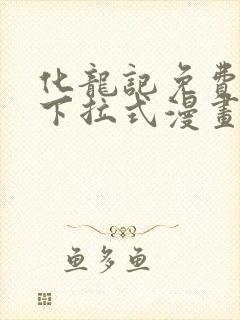 化龍記免費
下拉式漫畫
鱼多鱼